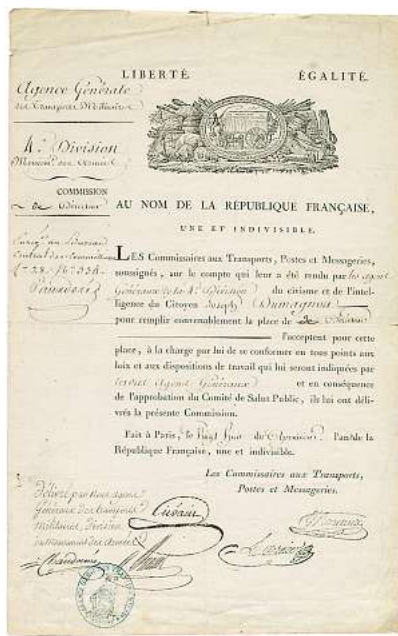 LIBERTÉ ÉGALITÉ.
Agence Générale
des Transports Militaires
4e. Division
Mouvemt. des Armées
COMMISSION
de
AU NOM DE LA RÉPUBLIQUE FRANÇAISE,
UNE ET INDIVISIBLE.
LES Commissaires aux Transports, Postes et Messageries,
soussignés, sur le compte qui leur a été rendu par les agents
Généraux de la 4e. Division du civisme et de l'intel-
ligence du Citoyen Joseph
pour remplir convenablement la place de
l'acceptent pour cette
place, à la charge par lui de se conformer en tous points aux
loix et aux dispositions de travail qui lui seront indiquées par
lesdits Agents Généraux et en conséquence
de l'approbation du Comité de Salut Public, ils lui ont déli-
vrés la présente Commission.
Fait à Paris, le Vingt de l'an de la
République Française, une et indivisible.
Les Commissaires aux Transports,
Postes et Messageries.
Délivré par Nous agens
Généraux des transports
militaires, division
du Mouvement des Armées